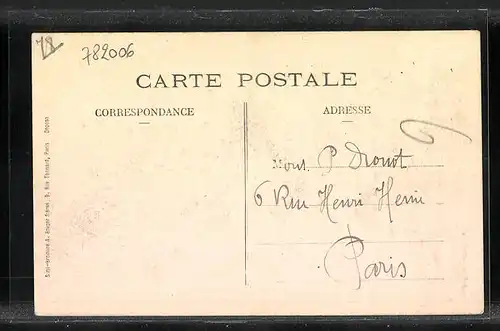 78
782006
CARTE POSTALE
CORRESPONDANCE
ADRESSE
Mons. P Drouot
6 Rue Henri Heine
Paris
A. Breger frères, 9, Rue Thénard, Paris